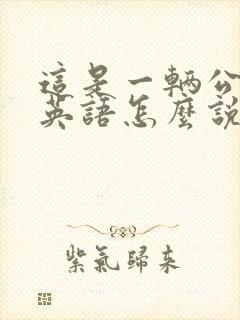 這是一輛公
英語怎麼說
紫氣歸來